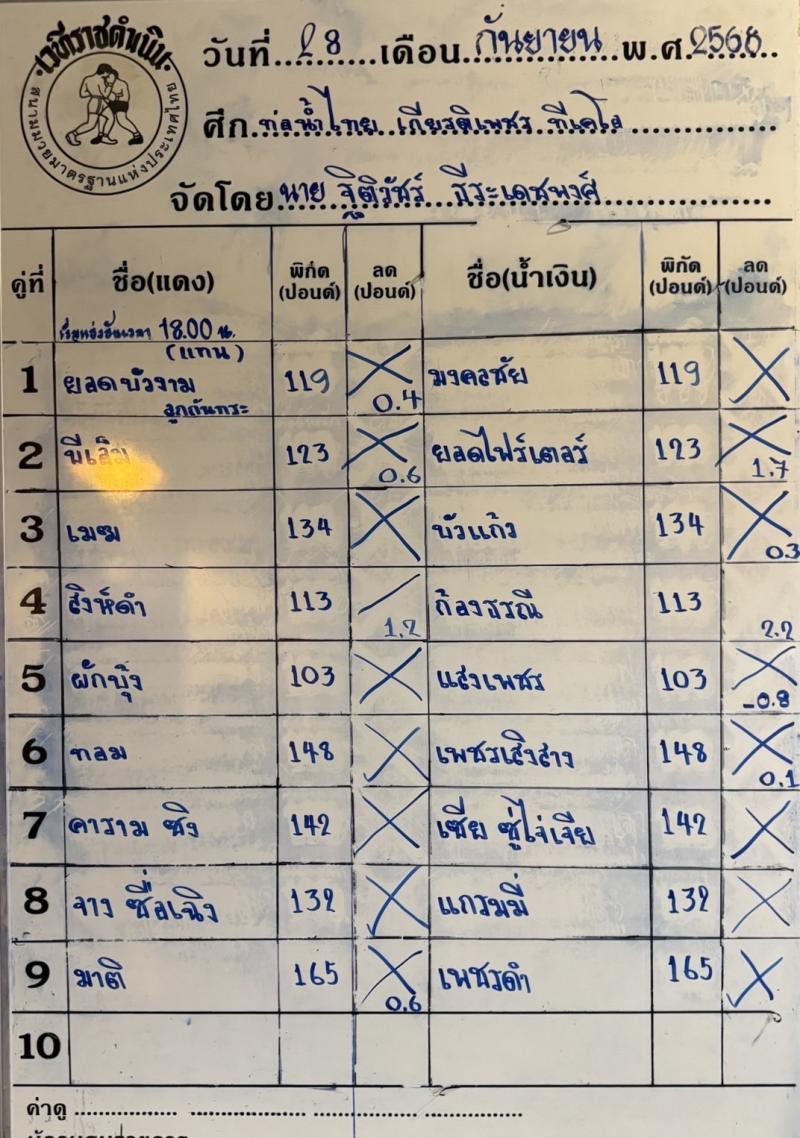 เวทีราชดำเนิน
สนามมวยมาตรฐานแห่งประเทศไทย
วันที่ 28 เดือน กันยายน พ.ศ. 2568
ศึก ท่อน้ำไทย เกียรติเพชร ทีเคโอ
จัดโดย นาย ฐิติวัชร์ ธีระเดชพงศ์
คู่ที่ ชื่อ(แดง) พิกัด (ปอนด์) ลด (ปอนด์) ชื่อ(น้ำเงิน) พิกัด (ปอนด์) ลด (ปอนด์)
18.00 น.
(แทน)
1 ยอดบัวงาม 119 0.4 มงคลชัย 119
2 123 0.6 ยอดไฟร์เตอร์ 123 1.7
3 เมฆ 134 บัวแก้ว 134 0.3
4 สิงห์ดำ 113 1.2 ก้องธรณี 113 2.2
5 ผักบุ้ง 103 แสงเพชร 103 -0.8
6 ทลม 148 เพชรเสิงสาง 148 0.1
7 คาราม ซิง 142 เซีย ซู่ไจ่เจีย 142
8 จาง ซื่อเฉิง 132 แกรมมี่ 132
9 มาติ 165 0.6 เพชรดำ 165
10
ค่าดู